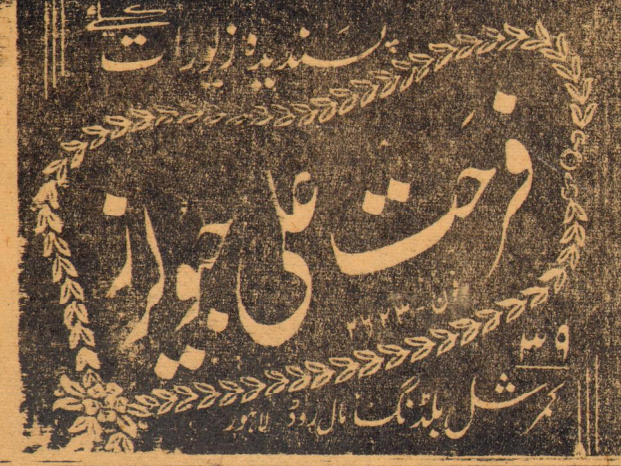 پسندیدہ زیورات کیلئے
فرحت علی جیولرز
فون
۳۹
کمرشل بلڈنگ مال روڈ لاہور